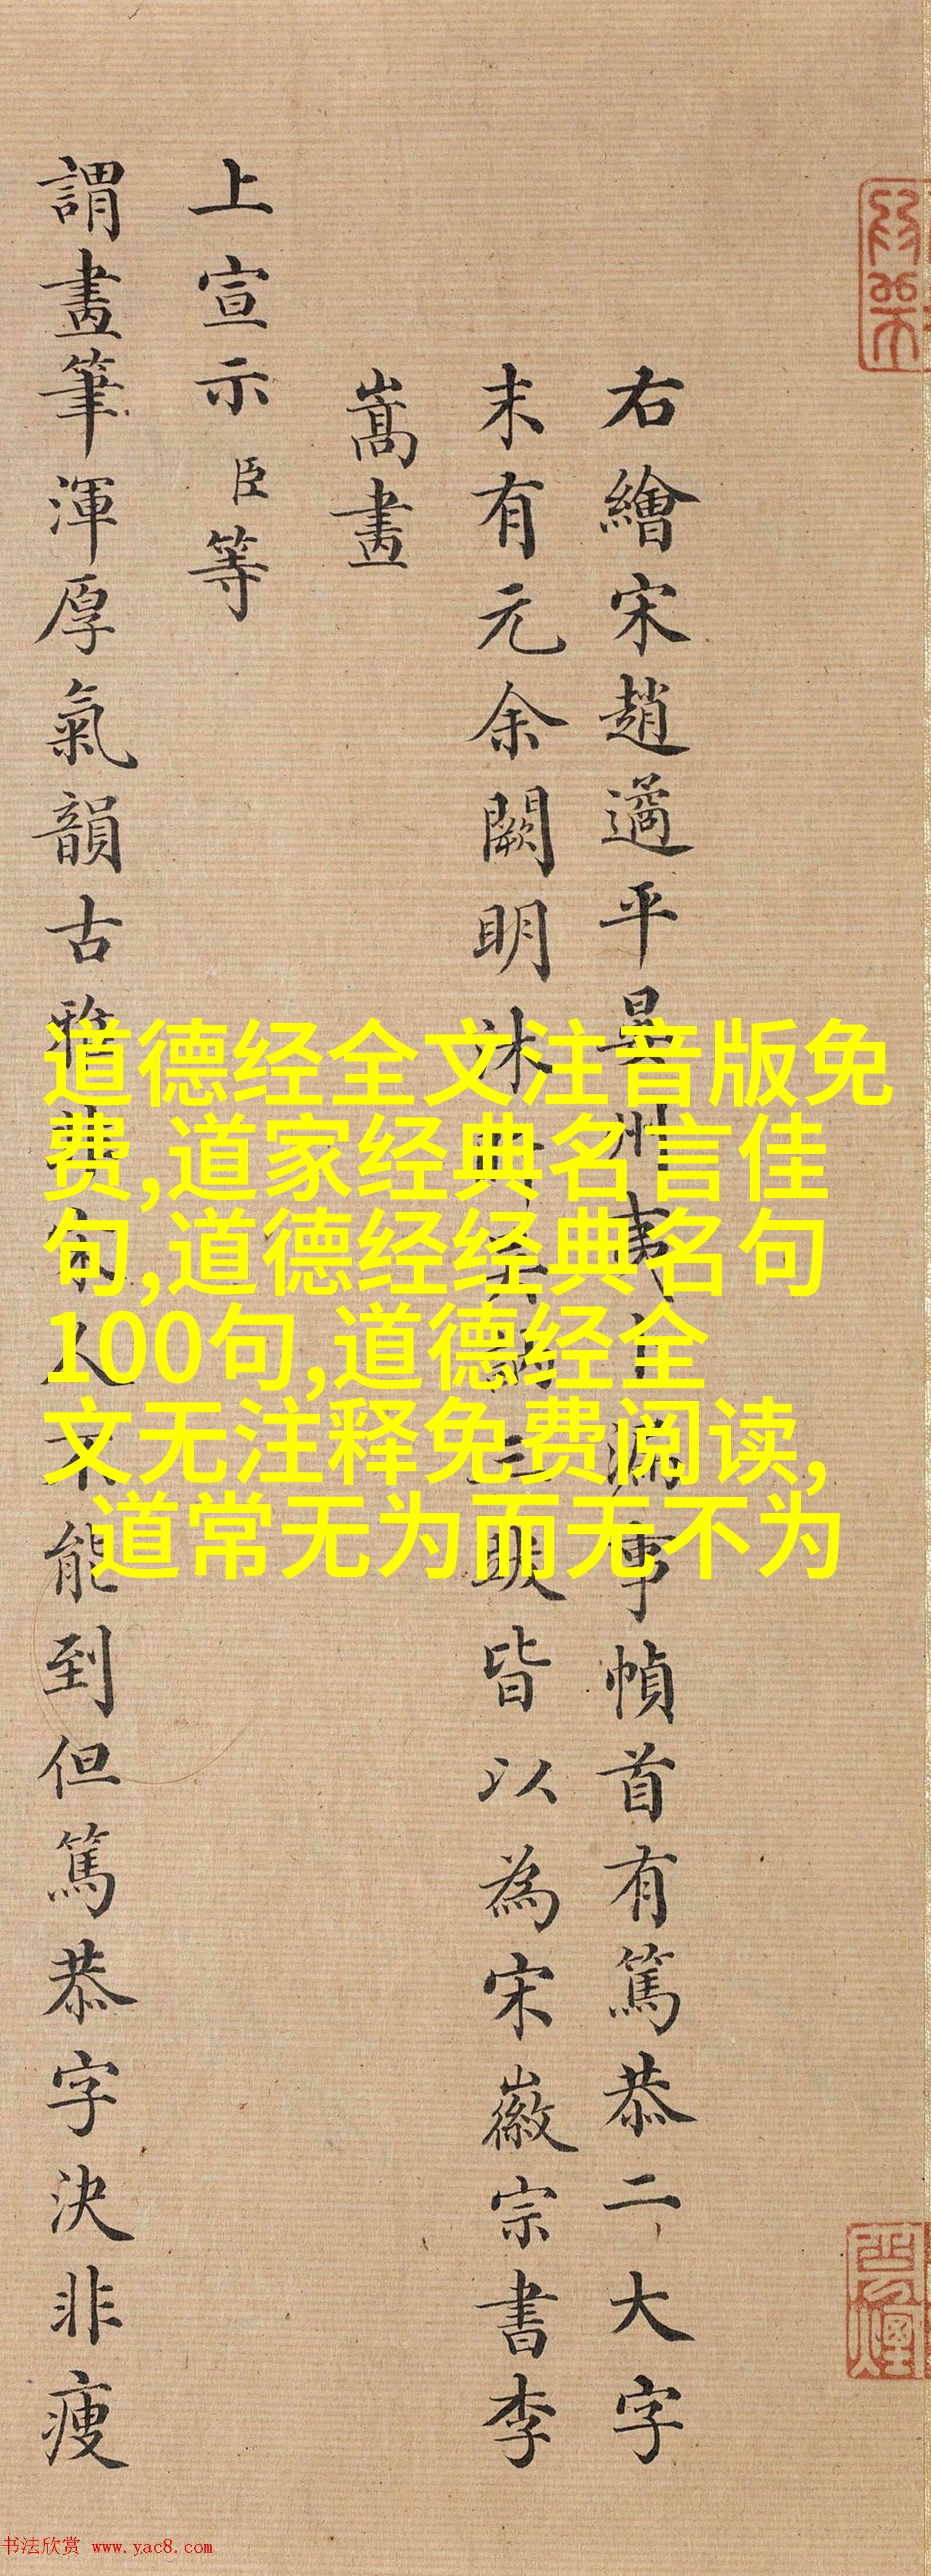 右繪宋趙遹平晏州夷卜漏事幀首有篤恭二大字
末有元余闕明沐三跋皆以為宋徽宗書李
嵩畫
上宣示臣等
謂畫筆渾厚氣韻古雅非宋人不能到但篤恭字決非瘦
道德经全文注音版免
费,道家经典名言佳
句,道德经经典名句
100句,道德经全
文无注释免费阅读,
道常无为而无不为
书法欣赏 www.yac8.com